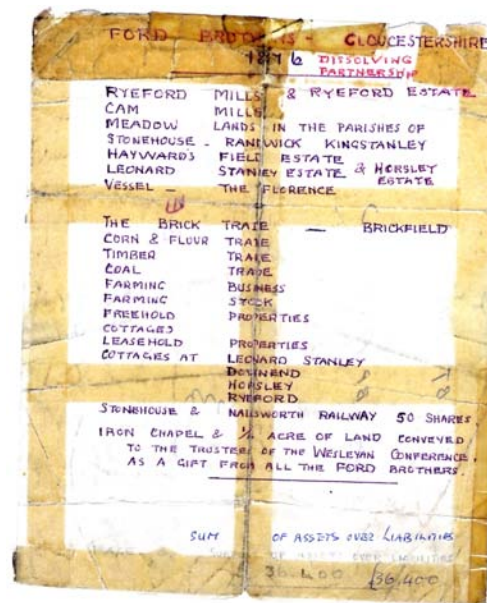 FORD BROTHERS - GLOUCESTERSHIRE
1876 DISSOLVING
PARTNERSHIP
RYEFORD MILLS & RYEFORD ESTATE
CAM MILLS
MEADOW LANDS IN THE PARISHES OF
STONEHOUSE - RANDWICK KINGSTANLEY
HAYWARD'S FIELD ESTATE
LEONARD STANLEY ESTATE & HORSLEY ESTATE
VESSEL - THE FLORENCE
THE BRICK TRADE - BRICKFIELD
CORN & FLOUR TRADE
TIMBER TRADE
COAL TRADE
FARMING BUSINESS
FARMING STOCK
FREEHOLD PROPERTIES
COTTAGES
LEASEHOLD PROPERTIES
COTTAGES AT LEONARD STANLEY
DOWNEND
HORSLEY
RYEFORD
STONEHOUSE & NAILSWORTH RAILWAY 50 SHARES
IRON CHAPEL & 1/4 ACRE OF LAND CONVEYED
TO THE TRUSTEES OF THE WESLEYAN CONFERENCE
AS A GIFT FROM ALL THE FORD BROTHERS.
SUM OF ASSETS OVER LIABILITIES
OF ASSETS OVER LIABILITIES
36.400 £36,400